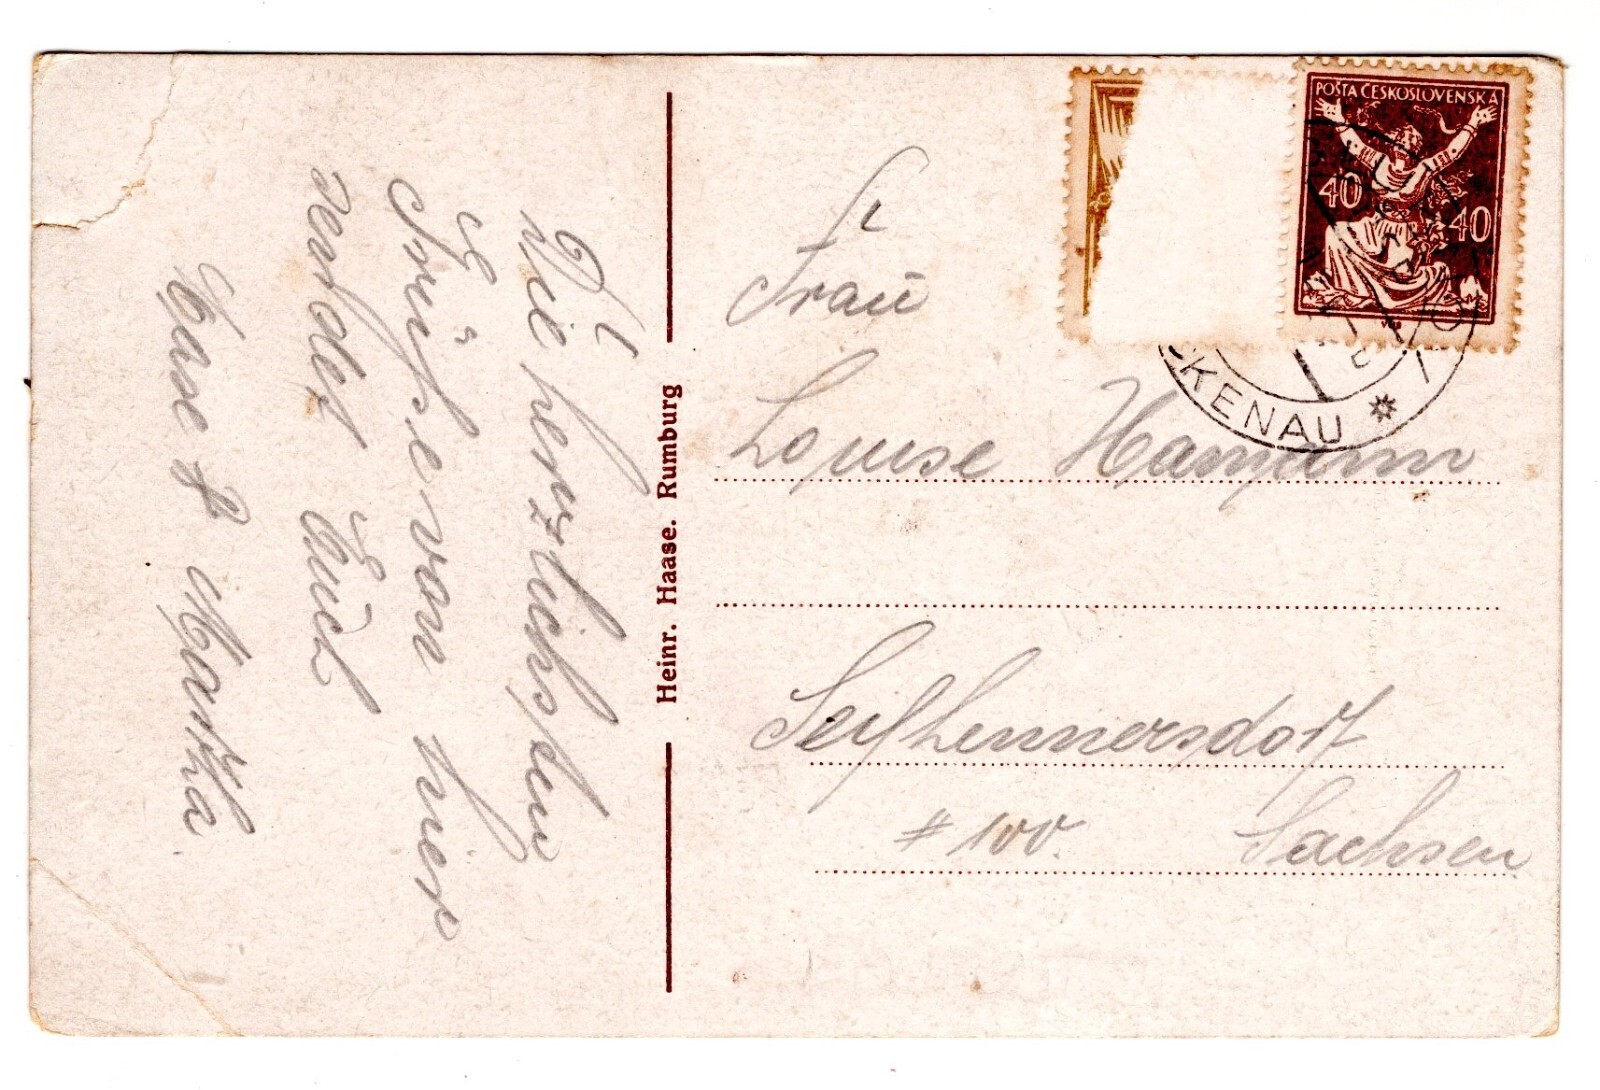 Die herzlichsten
Grüße von hier
sendet Euch
Eure
Heinr. Haase. Rumburg
POŠTA ČESKOSLOVENSKÁ
40 40
CKENAU
Frau
Louise Hamann
Seifhennersdorf
# 100. Sachsen